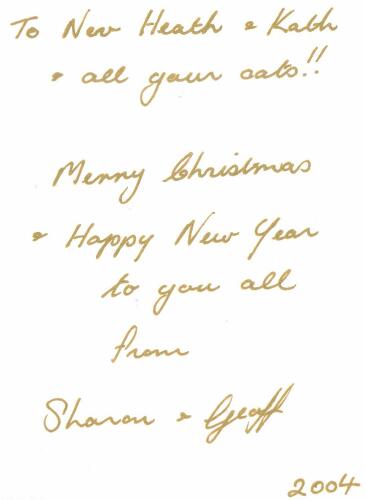 To Nev Heath & Kath
& all your cats!!
Merry Christmas
& Happy New Year
to you all
from
Sharon & Geoff
2004